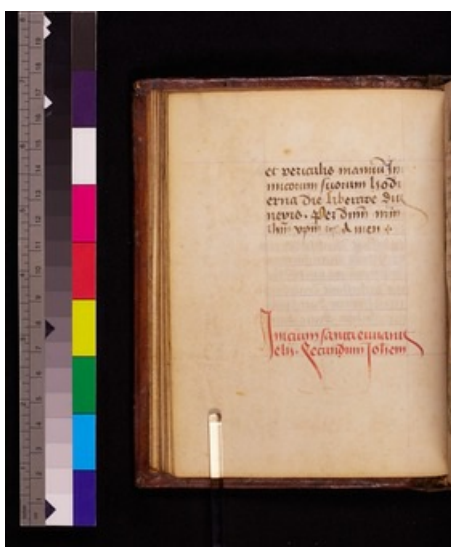 et periculis manuū In
micorum suorum hodi
erna die liberare dig
neris. Per dnm̄ nrm̄
ihm̄ xpm̄ Amen
Inicium sancti euuange
lii. Secundum Iohem